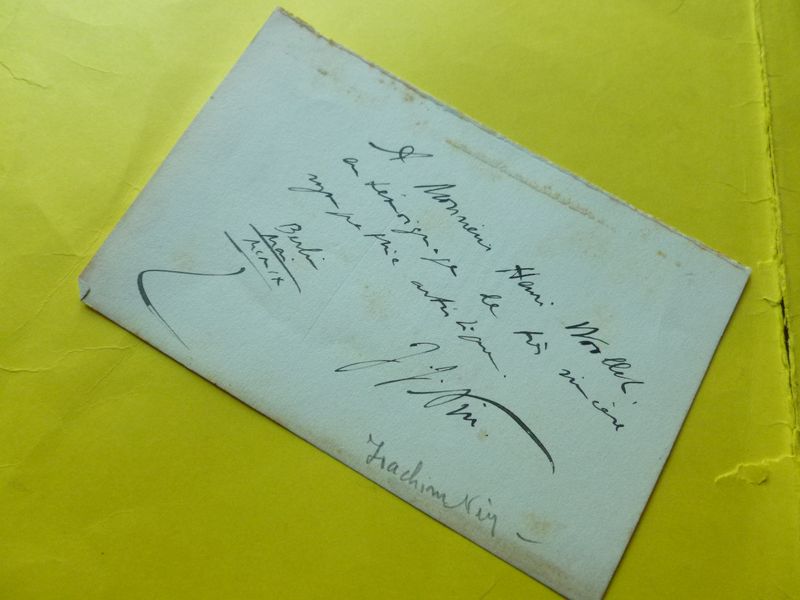 A Monsieur Henri Woollett
en témoignage de très sincère
sympathie artistique.
J. J. Nin.
Berlin
Mai
MCMIX
Joachim Nin